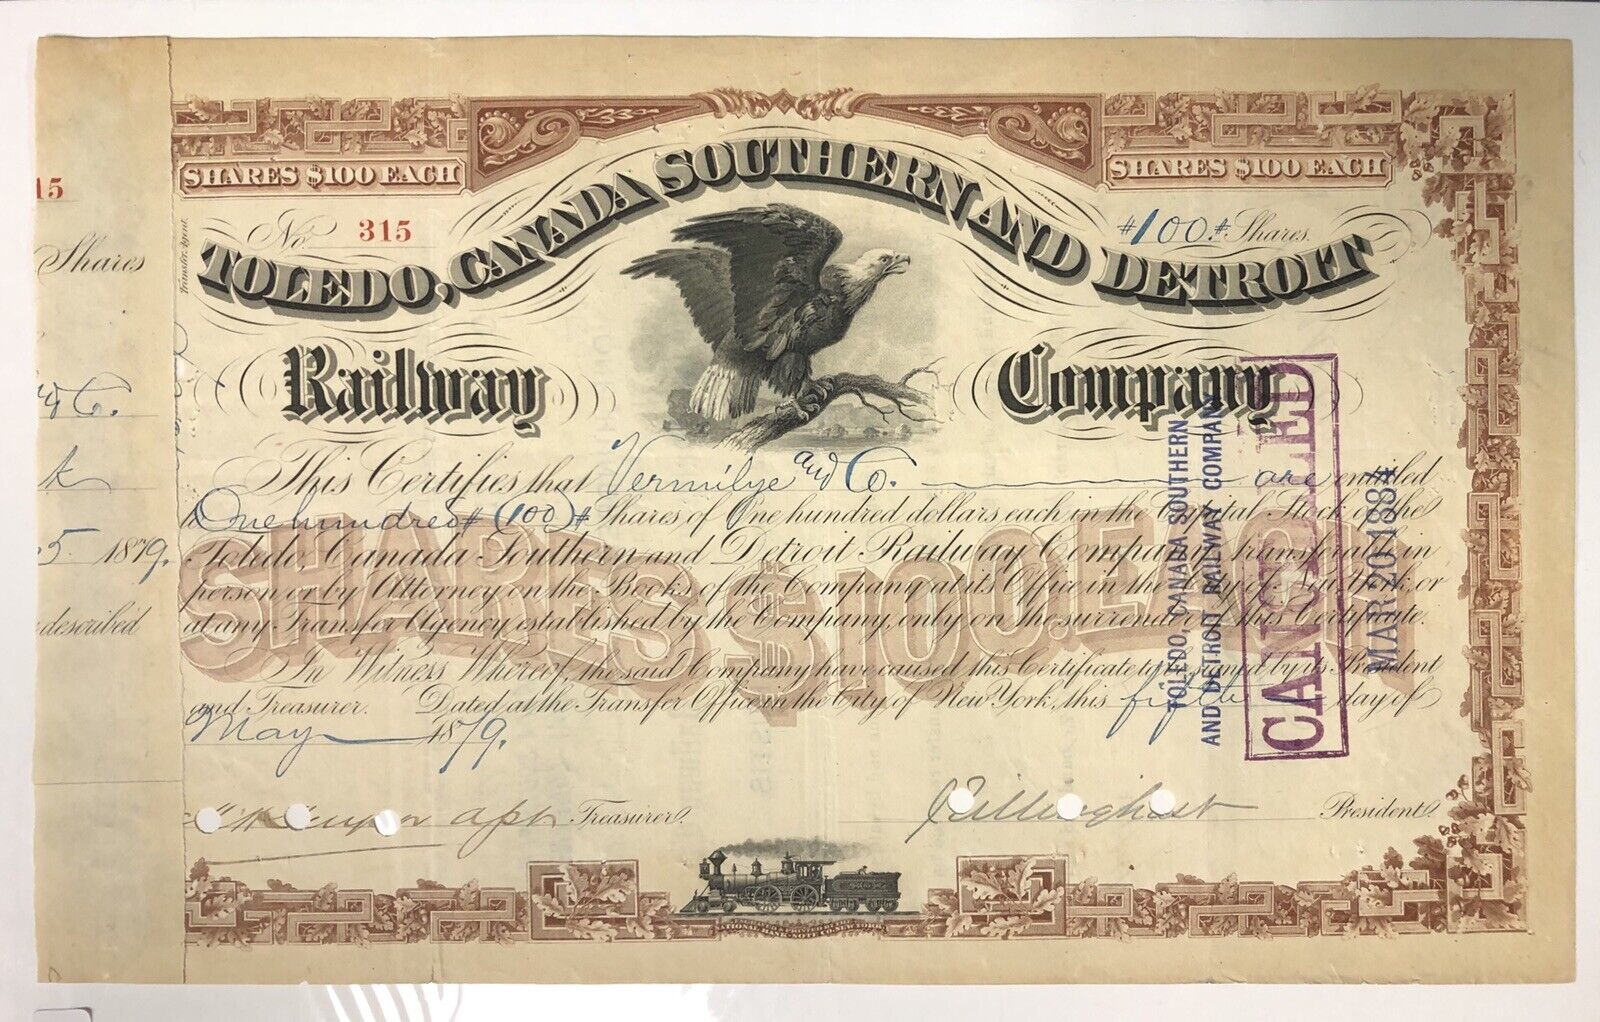 15
Shares
& Co.
5 1879.
described
Transfer Agent.
SHARES $100 EACH
SHARES $100 EACH
No. 315
#100# Shares.
TOLEDO, CANADA SOUTHERN AND DETROIT
Railway Company
This Certifies that Vermilye and Co. are entitled
to One hundred # (100) # Shares of One hundred dollars each in the Capital Stock of the
Toledo, Canada Southern and Detroit Railway Company, transferable in
person or by Attorney on the Books of the Company at its Office in the City of New York, or
at any Transfer Agency established by the Company, only on the surrender of this Certificate.
SHARES $100. EACH
In Witness Whereof, the said Company have caused this Certificate to be signed by its President
and Treasurer. Dated at the Transfer Office in the City of New York, this fifth day of
May 1879.
Treasurer.
President.
TOLEDO, CANADA SOUTHERN
AND DETROIT RAILWAY COMPANY
CANCELLED
MAR 20 1884